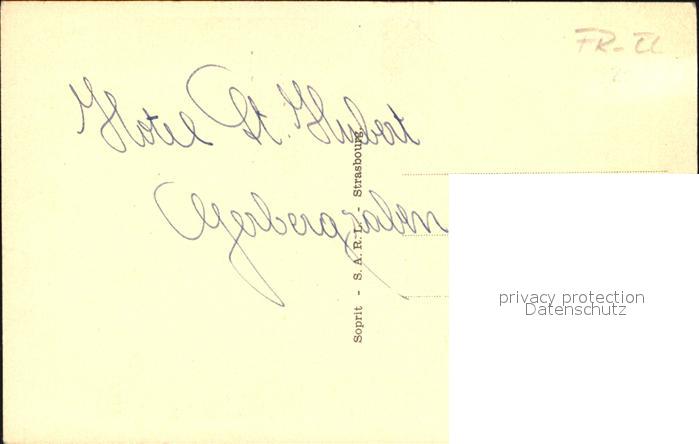 FR-
Hotel St. Hubert
Gerbergraben
Soprit - S.A.R.L. - Strasbourg.
privacy protection
Datenschutz